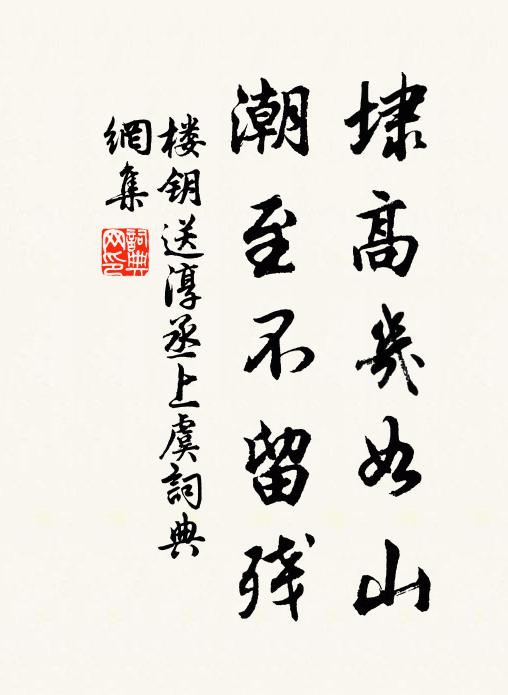 埭高几如山
潮至不留残
楼钥送淳丞上虞詞典
網集
詞典網印